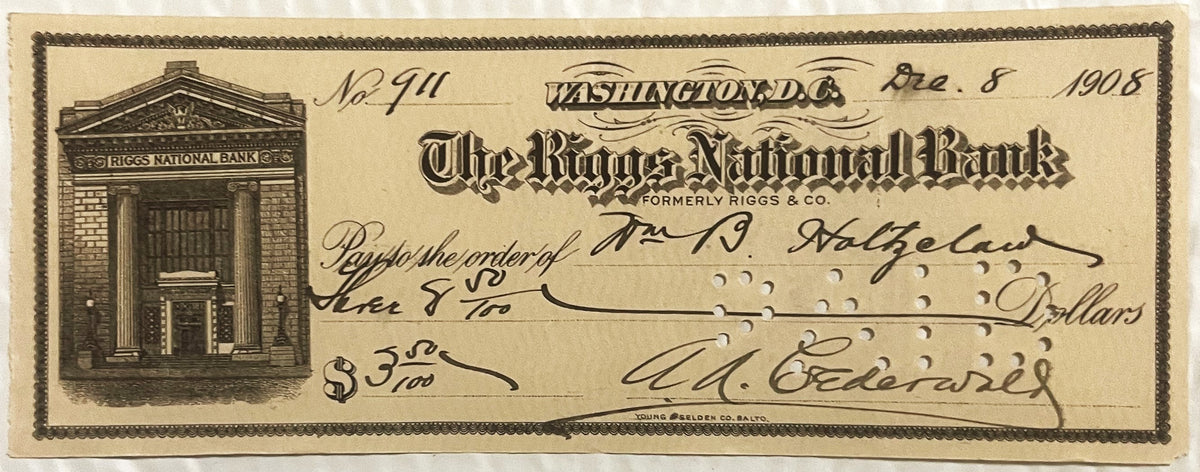 No. 911 WASHINGTON, D.C. Dec. 8 1908
RIGGS NATIONAL BANK
The Riggs National Bank
FORMERLY RIGGS & CO.
Pay to the order of Wm B. Holtzclaw
Three & 50/100 Dollars
$ 3 50/100
A. A. Cederwald
YOUNG & SELDEN CO. BALTO.